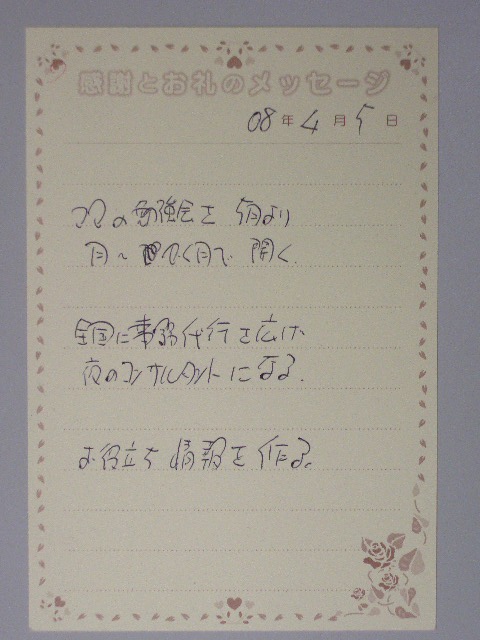 感謝とお礼のメッセージ
08年4月5日
の勉強会を 5月より
で 開く.
全国に事務代行を広げ
夜のコンサルタントになる.
お役立ち 情報を作る。